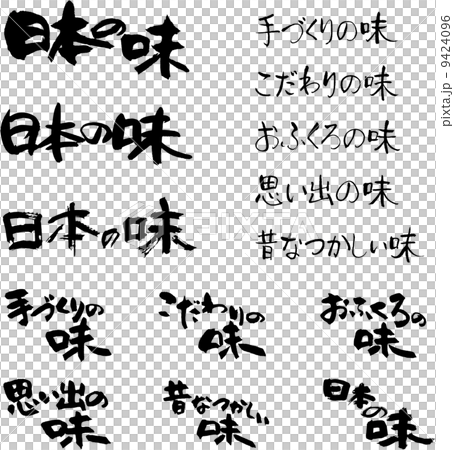 日本の味
日本の味
日本の味
手づくりの味
こだわりの味
おふくろの味
思い出の味
昔なつかしい味
手づくりの
味
こだわりの
味
おふくろの
味
思い出の
味
昔なつかしい
味
日本の
味
PIXTA
pixta.jp - 9424096